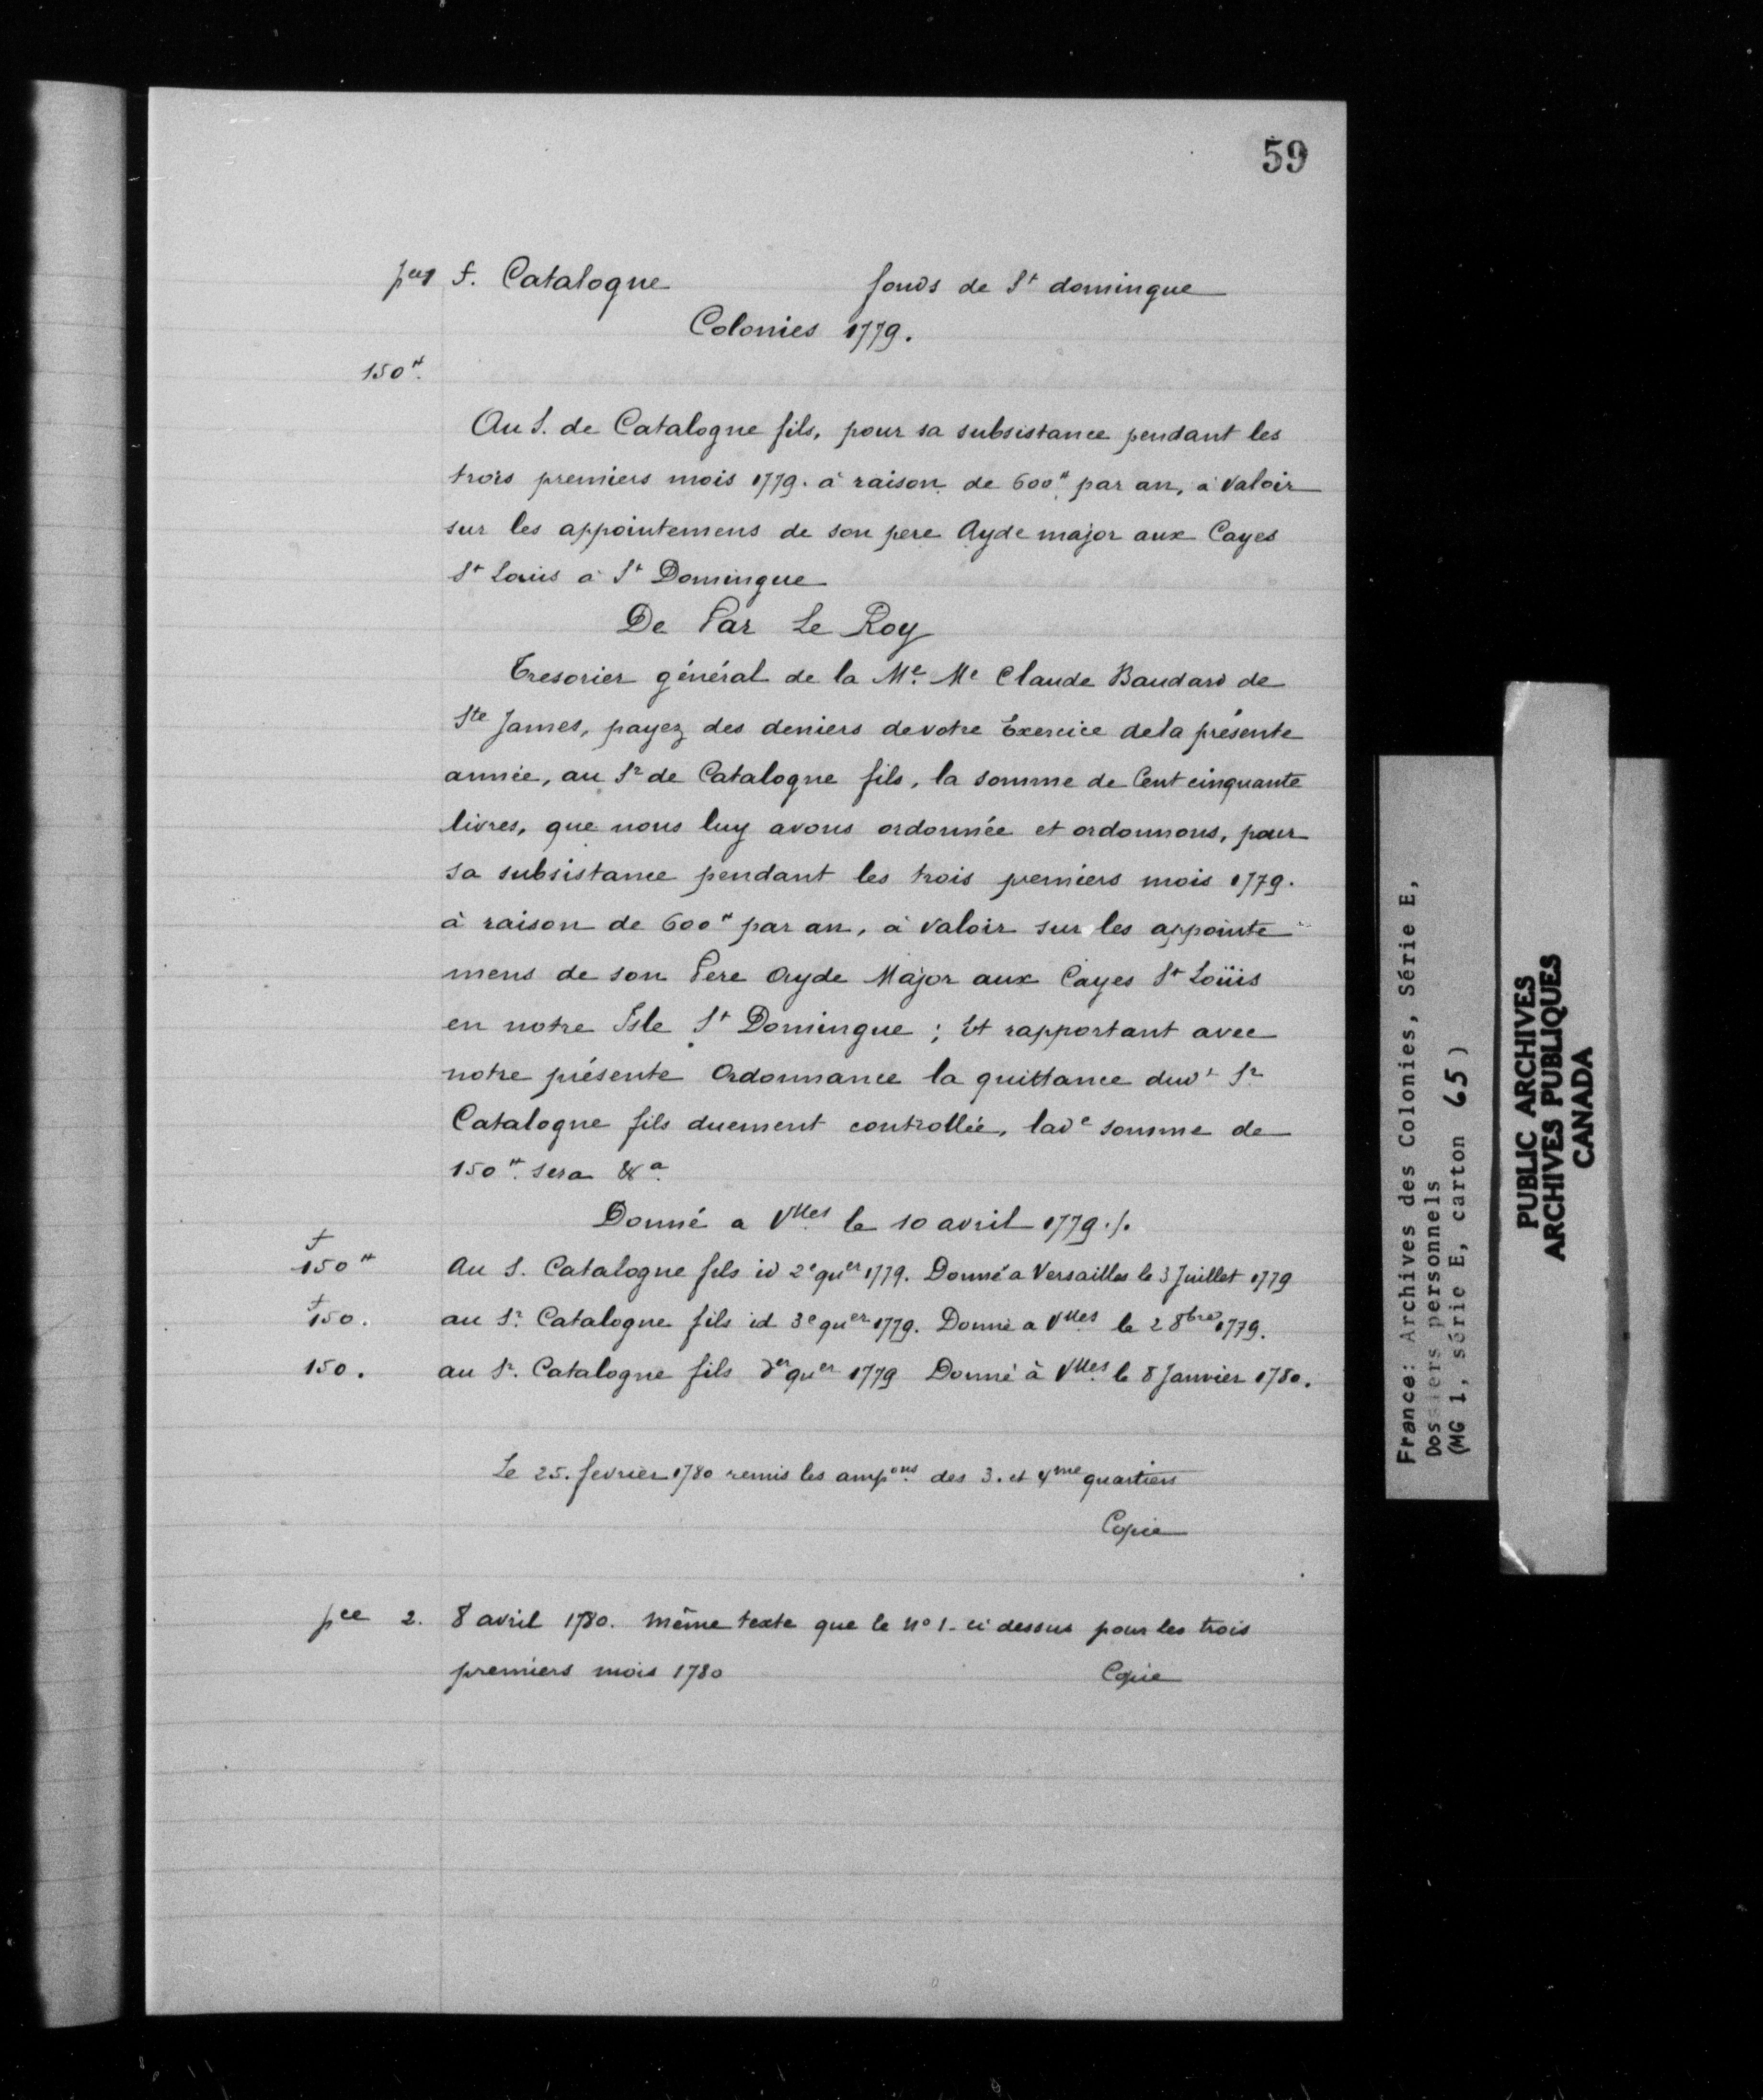 59
pce 1 F. Catalogne fonds de St domingue
Colonies 1779.
150#.
Au S. de Catalogne fils, pour sa subsistance pendant les
trois premiers mois 1779. à raison de 600# par an, à valoir
sur les appointemens de son pere Ayde major aux Cayes
St Louis à St Domingue
De Par Le Roy
Tresorier général de la Me. Me Claude Baudard de
Ste James, payez des deniers de votre Exercice de la présente
année, au Sr de Catalogne fils, la somme de Cent cinquante
livres, que nous luy avons ordonnée et ordonnons, pour
sa subsistance pendant les trois premiers mois 1779.
à raison de 600# par an, à valoir sur les appointe
mens de son Pere Ayde Major aux Cayes St Loüis
en notre Isle St Domingue ; Et rapportant avec
notre présente Ordonnance la quittance dudt Sr
Catalogne fils duement controllée, lade somme de
150#. sera &a.
Donné a Vlles le 10 avril 1779./.
150# Au S. Catalogne fils id 2e quer 1779. Donné a Versailles le 3 Juillet 1779
150. au Sr. Catalogne fils id 3e quer 1779. Donné a Vlles le 2 8bre 1779.
150. au Sr. Catalogne fils der quer 1779 Donné à Vlles le 8 Janvier 1780.
Le 25. fevrier 1780 remis les ampons. des 3. et 4me quartiers
Copie
pce 2. 8 avril 1780. même texte que le no 1 - ci dessus pour les trois
premiers mois 1780 Copie
France: Archives des Colonies, Série E,
Dossiers personnels
(MG 1, série E, carton 65)
PUBLIC ARCHIVES
ARCHIVES PUBLIQUES
CANADA